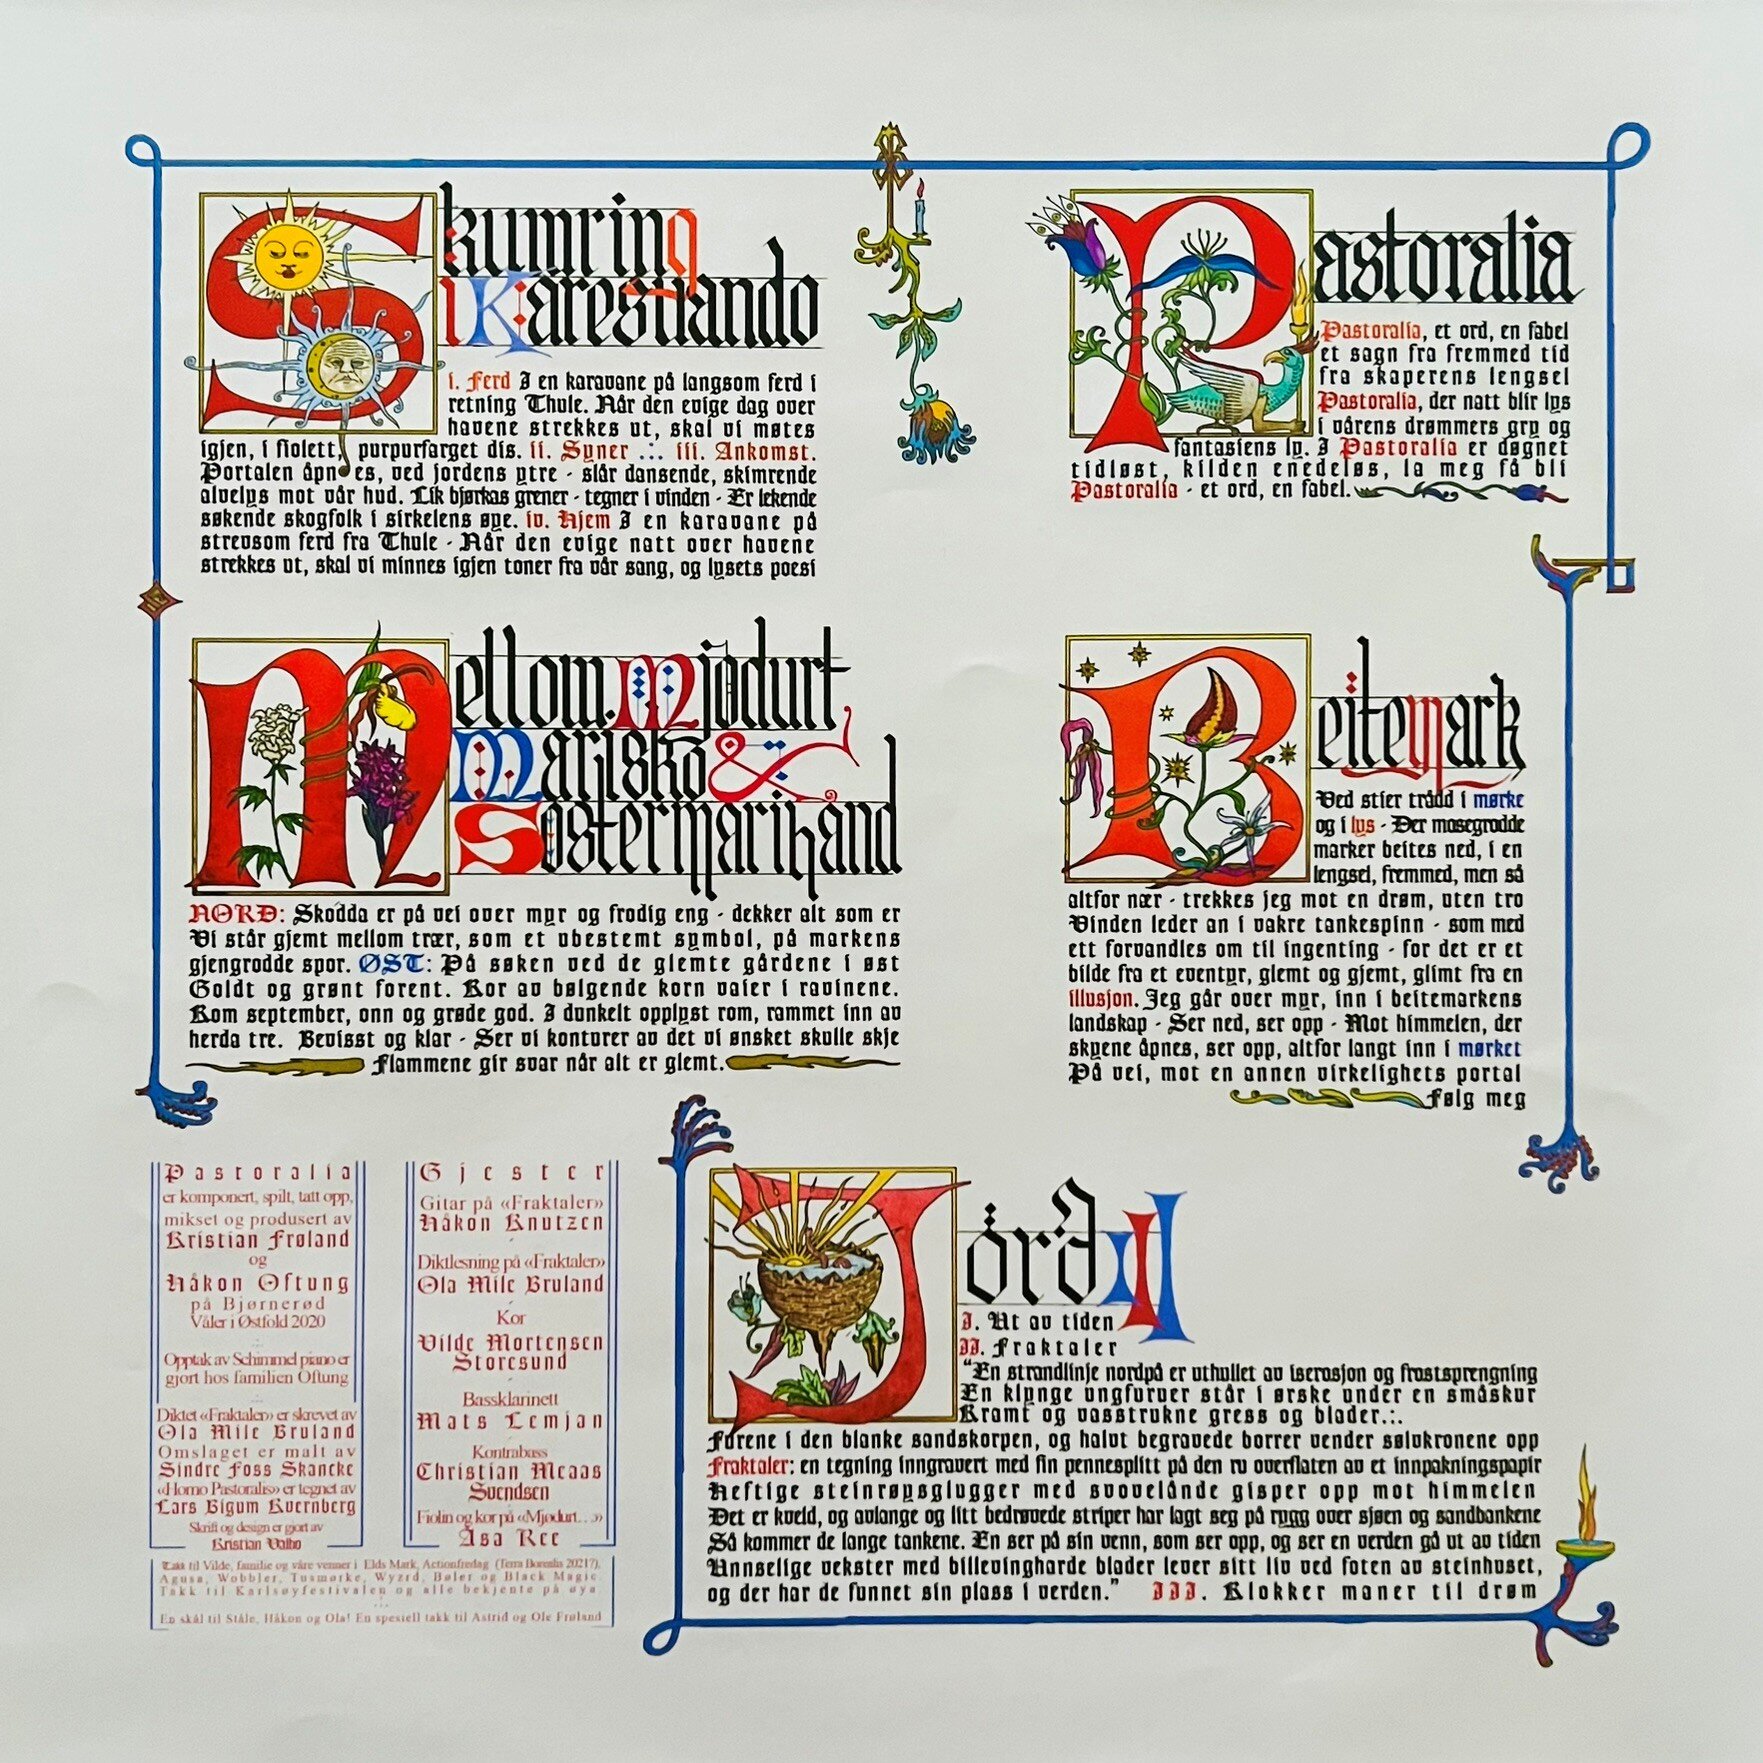 Skumring
i Karesuando
i. Ferd I en karavane på langsom ferd i
retning Thule. Når den evige dag over
havene strekkes ut, skal vi møtes
igjen, i fiolett, purpurfarget dis. ii. Syner .:. iii. Ankomst.
Portalen åpnes, ved jordens ytre - slår dansende, skimrende
alvelys mot vår hud. Lik bjørkas grener - tegner i vinden - Er lekende
søkende skogfolk i sirkelens øye. iv. Hjem I en karavane på
strevsom ferd fra Thule - Når den evige natt over havene
strekkes ut, skal vi minnes igjen toner fra vår sang, og lysets poesi
Pastoralia
Pastoralia, et ord, en fabel
et sagn fra fremmed tid
fra skaperens lengsel
Pastoralia, der natt blir lys
i vårens drømmers gry og
fantasiens ly. I Pastoralia er døgnet
tidløst, kilden endeløs, la meg få bli
Pastoralia - et ord, en fabel.
Mellom Mjødurt
Marisko &
Søstermarihand
NORD: Skodda er på vei over myr og frodig eng - dekker alt som er
Vi står gjemt mellom trær, som et ubestemt symbol, på markens
gjengrodde spor. ØST: På søken ved de glemte gårdene i øst
Goldt og grønt forent. Hor av bølgende korn vaier i ravinene.
Kom september, onn og grøde god. I dunkelt opplyst rom, rammet inn av
herda tre. Bevisst og klar - Ser vi konturer av det vi ønsket skulle skje
Flammene gir svar når alt er glemt.
Beitemark
Ved stier trådd i mørke
og i lys - Der mosegrodde
marker beites ned, i en
lengsel, fremmed, men så
altfor nær - trekkes jeg mot en drøm, uten tro
Vinden leder an i vakre tankespinn - som med
ett forvandles om til ingenting - for det er et
bilde fra et eventyr, glemt og gjemt, glimt fra en
illusjon. Jeg går over myr, inn i beitemarkens
landskap - Ser ned, ser opp - Mot himmelen, der
skyene åpnes, ser opp, altfor langt inn i mørket
På vei, mot en annen virkelighets portal
Følg meg
Pastoralia
er komponert, spilt, tatt opp,
mikset og produsert av
Kristian Frøland
og
Håkon Oftung
på Bjørnerød
Våler i Østfold 2020
Opptak av Schimmel piano er
gjort hos familien Oftung
Diktet «Fraktaler» er skrevet av
Ola Mile Bruland
Omslaget er malt av
Sindre Foss Skancke
«Homo Pastoralis» er tegnet av
Lars Bigum Kvernberg
Skrift og design er gjort av
Kristian Valbo
Gjester
Gitar på «Fraktaler»
Håkon Knutzen
Diktlesning på «Fraktaler»
Ola Mile Bruland
Kor
Vilde Mortensen
Storesund
Bassklarinett
Mats Lemjan
Kontrabass
Christian Meaas
Svendsen
Fiolin og kor på «Mjødurt...»
Åsa Ree
Takk til Vilde, familie og våre venner i Elds Mark, Actionfredag (Terra Borealis 2021?),
Agusa, Wobbler, Tusmørke, Wyzrd, Bøler og Black Magic.
Takk til Karlsøyfestivalen og alle bekjente på øya.
En skål til Ståle, Håkon og Ola! En spesiell takk til Astrid og Ole Frøland
Jord II
I. Ut av tiden
II. Fraktaler
"En strandlinje nordpå er uthullet av iserosjon og frostsprengning
En klynge ungfuruer står i ørske under en småskur
Kramt og vasstrukne gress og blader.:.
Furene i den blanke sandskorpen, og halvt begravede borrer vender sølvkronene opp
Fraktaler: en tegning inngravert med fin pennesplitt på den ru overflaten av et innpakningspapir
Heftige steinrøysglugger med svovelånde gisper opp mot himmelen
Det er kveld, og avlange og litt bedrøvede striper har lagt seg på rygg over sjøen og sandbankene
Så kommer de lange tankene. En ser på sin venn, som ser opp, og ser en verden gå ut av tiden
Unnselige vekster med billevingharde blader lever sitt liv ved foten av steinhuset,
og der har de funnet sin plass i verden." III. Klokker maner til drøm